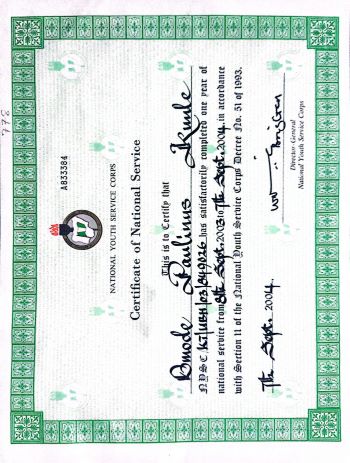 778
A833384
NATIONAL YOUTH SERVICE CORPS
Certificate of National Service
This is to Certify that
Omode Paulinus Kunle
NYSC KT/UBH/03/849026 has satisfactorily completed one year of
national service from 8th Sept. 2003 to 7th Sept. 2004. in accordance
with Section 11 of the National Youth Service Corps Decree No. 51 of 1993.
7th Sept. 2004.
Director-General
National Youth Service Corps